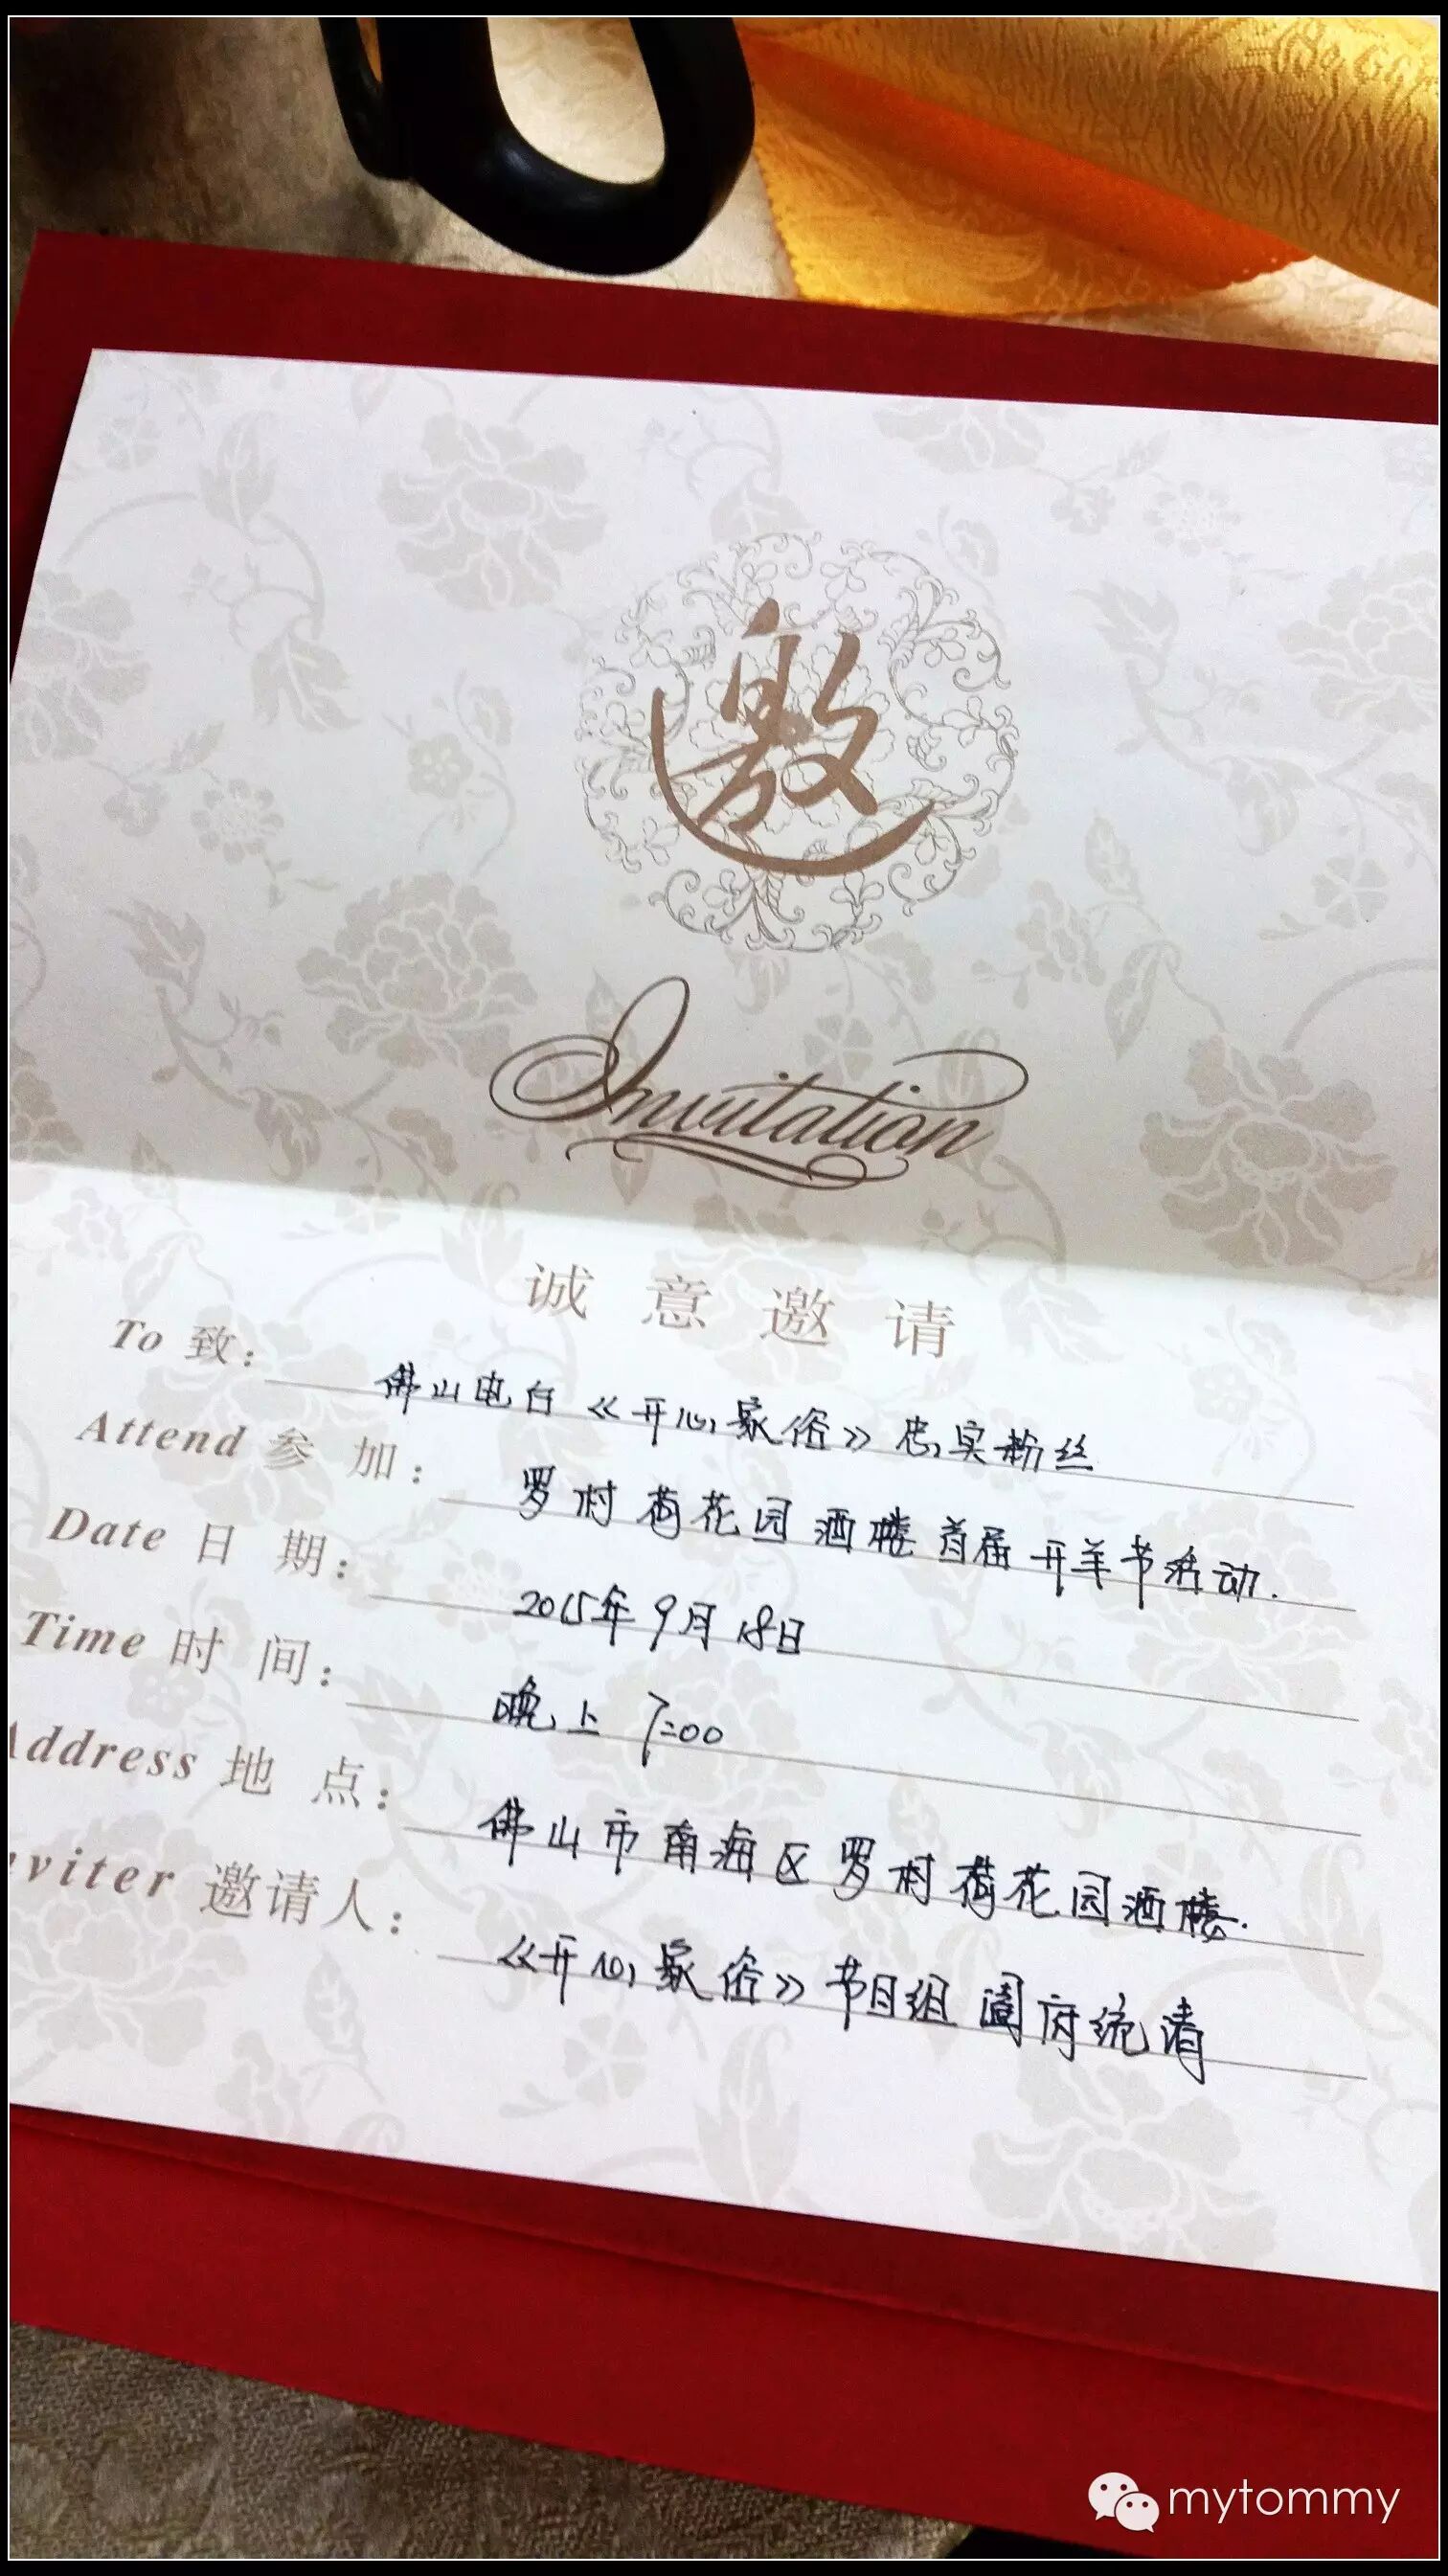 邀
Invitation
诚意邀请
To 致: 佛山电台《开心家俗》忠实粉丝
Attend 参加: 罗村荷花园酒楼首届开羊节活动.
Date 日期: 2015年9月18日
Time 时间: 晚上 7:00
Address 地点: 佛山市南海区罗村荷花园酒楼.
nviter 邀请人: 《开心家俗》节目组 阖府统请
mytommy